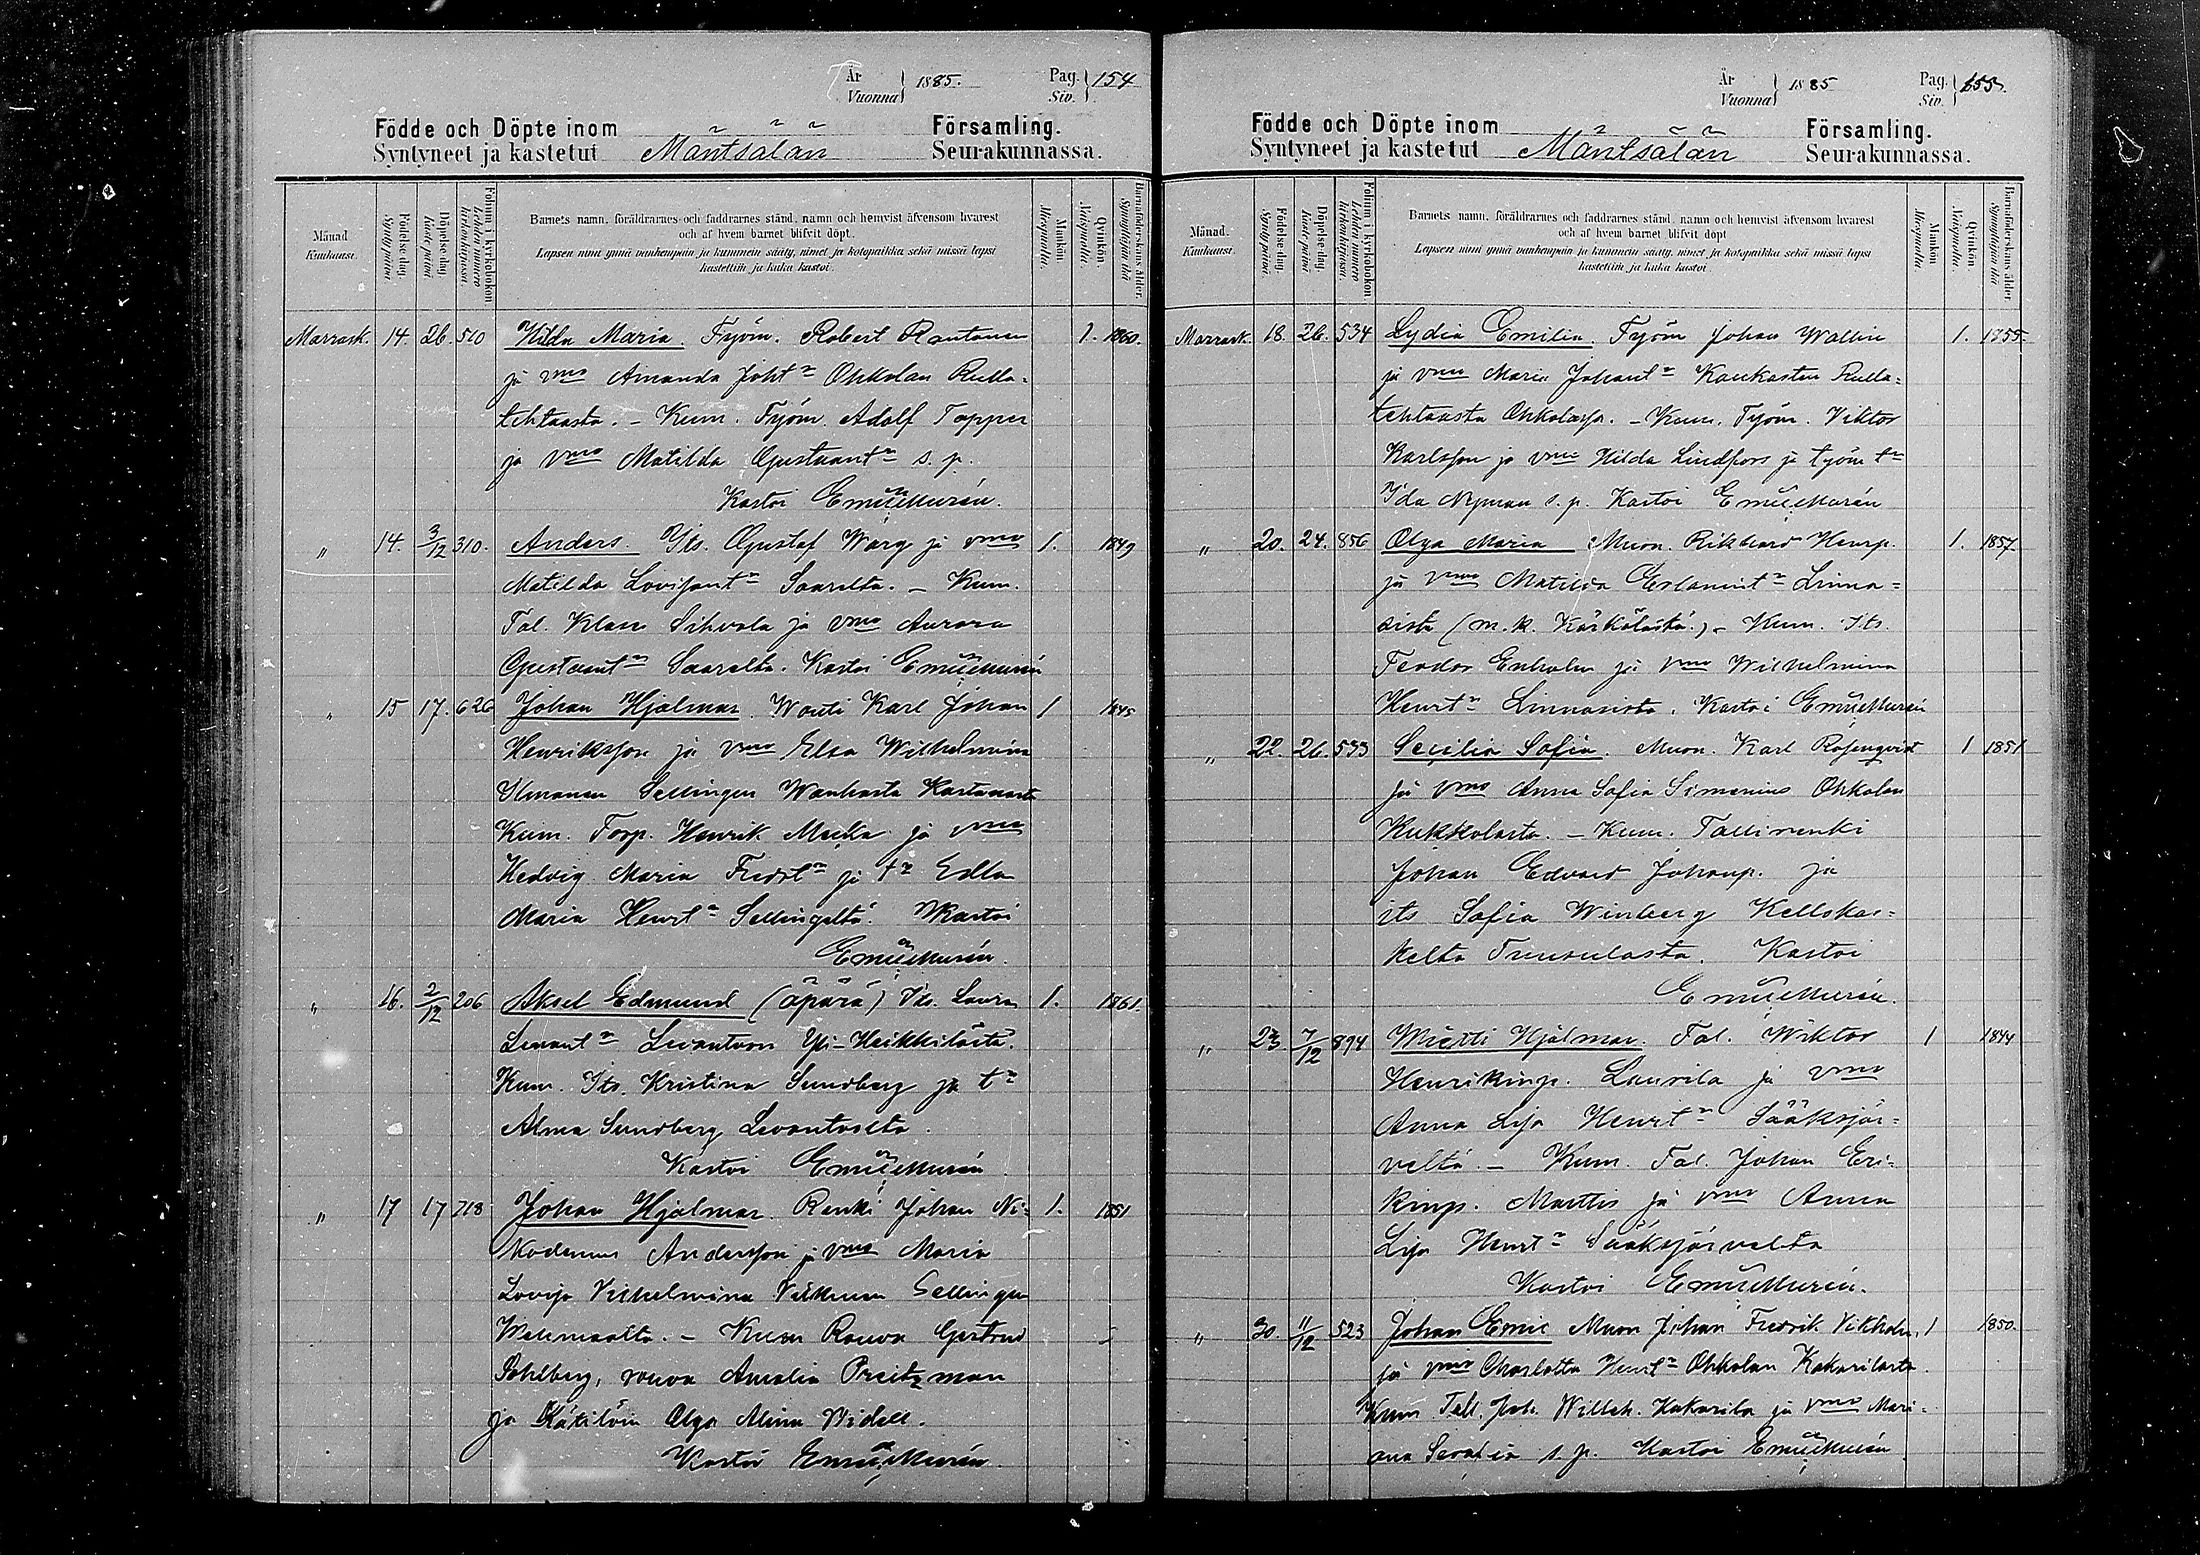 År Vuonna } 1885. Pag. Siv. } 154
Födde och Döpte inom Församling.
Syntyneet ja kastetut Mäntsälän Seurakunnassa.
Månad. Kuukausi.
Födelse dag. Syntypäivä
Döpelse dag. Kaste päivä
Folium i kyrkoboken Lehden numero kirkonkirjassa.
Barnets namn, föräldrarnes och faddrarnes stånd, namn och hemvist äfvensom hvarest
och af hvem barnet blifvit döpt.
Lapsen nimi ynnä vanhempain ja kummein sääty, nimet ja kotopaikka sekä missä lapsi
kastettiin ja kuka kastoi.
Mankön. Miespuolia.
Qvinkön. Naispuolia.
Barnaföderskans ålder. Synnyttäjän ikä
Marrask. 14. 26. 510 Hilda Maria. Työm. Robert Rautanen 1. 1860.
ja vmo Amanda Joht:r Ohkolan Rulla-
tehtaasta. - Kum. Työm. Adolf Topper
ja vmo Matilda Gustaant:r s. p.
Kastoi Emil Murén.
" 14. 3/12 310. Anders. Its. Gustaf Warg ja vmo 1. 1849
Matilda Lovisant:r Saarelta. - Kum.
Tal. Klas Sihvola ja vmo Aurora
Gustaant:r Saarelta. Kastoi Emil Murén
" 15 17. 626 Johan Hjalmar. Wouti Karl Johan 1 1845
Henriksson ja vmo Elsa Wilhelmina
Ilmanen Sellingen Wanhasta Kartanosta
Kum. Torp. Henrik ja vmo
Hedvig Maria Fredt:r ja t:r Edla
Maria Henrt:r Sellingeltä. Kastoi
Emil Murén.
" 16. 2/12 206 Aksel Edmund (äpärä) Its. Laura 1. 1861.
Levant:r Levantoon Yli-Heikkilästä.
Kum. Its. Kristina Sundberg ja t:r
Alma Sundberg Levantoolta.
Kastoi Emil Murén
" 17 17 718 Johan Hjalmar. Renki Johan Ni- 1. 1851
kodemus Andersson ja vmo Maria
Lovisa Vilhelmina Sellingen
- Kum Rouva Gertrud
Sohlberg, rouva Amalia Preitzman
ja Kätilöin Olga Alina Videll.
Kastoi Emil Murén
År Vuonna } 1885 Pag. Siv. } 155.
Födde och Döpte inom Församling.
Syntyneet ja kastetut Mäntsälän Seurakunnassa.
Månad. Kuukausi.
Födelse dag. Syntypäivä.
Döpelse dag. Kaste päivä.
Folium i kyrkoboken Lehden numero kirkonkirjassa.
Barnets namn, föräldrarnes och faddrarnes stånd, namn och hemvist äfvensom hvarest
och af hvem barnet blifvit döpt
Lapsen nimi ynnä vanhempain ja kummein sääty, nimet ja kotopaikka sekä missä lapsi
kastettiin ja kuka kastoi.
Mankön Miespuolia.
Qvinkön. Naispuolia.
Barnaföderskans ålder Synnyttäjän ikä
Marrask. 18. 26. 534 Lydia Emilia. Työm Johan Wallin 1. 1855.
ja vmo Maria Johant:r Kaukasten Rulla-
tehtaasta Ohkolassa. - Kum. Työm. Viktor
Karlsson ja vmo Hilda Lindfors ja työm t:r
Ida Nyman s. p. Kastoi Emil Murén
" 20. 24. 856 Olga Maria Muon. Rikhard Henrp. 1. 1857.
ja vmo Matilda Erlamint:r Linna-
sista (m. k. Kärkölästä.) - Kum. Its.
Feodor Enholm ja vmo Wilhelmina
Henrt:r Linnasista. Kastoi Emil Murén
" 22. 26. 533 Secilia Sofia. Muon. Karl Rosenqvist 1 1851
ja vmo Anna Sofia Simenius Ohkolan
Kukkolasta. - Kum. Tallirenki
Johan Edvard Johanp. ja
its Sofia Winberg Kellokos-
kelta Tuusulasta. Kastoi
Emil Murén.
" 23. 7/12 894 Mietti Hjalmar. Tal. Wiktor 1 1844
Henrikinp. Laurila ja vmo
Anna Lisa Henrt:r Sääksjär-
veltä. - Kum. Tal. Johan Eri-
kinp. Marttis ja vmo Anna
Lisa Henrt:r Sääksjärveltä
Kastoi Emil Murén.
" 30. 11/12 523 Johan Emil Muon Johan Fredrik Vikholm, 1 1850.
ja vmo Charlotta Henrt:r Ohkolan Kakarilasta.
Kum Tall. Joh. Willeh. Kakarila ja vmo Mari-
ana s. p. Kastoi Emil Murén